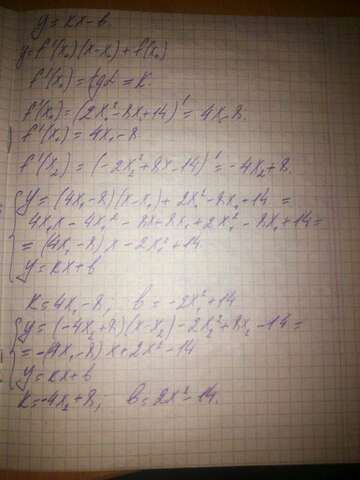 y = kx - b
y = f'(x₀)(x-x₀) + f(x₀)
f'(x₀) = tgα = k.
f'(x₁) = (2x₁² - 8x₁ + 14)' = 4x₁ - 8.
f'(x₁) = 4x₁ - 8
f'(x₂) = (-2x₂² + 8x₂ - 14)' = -4x₂ + 8.
y = (4x₁ - 8)(x - x₁) + 2x₁² - 8x₁ + 14 =
4x₁x - 4x₁² - 8x + 8x₁ + 2x₁² - 8x₁ + 14 =
= (4x₁ - 8)x - 2x₁² + 14
y = kx + b
k = 4x₁ - 8; b = -2x₁² + 14
y = (-4x₂ + 8)(x - x₂) - 2x₂² + 8x₂ - 14 =
= -(4x₂ - 8)x + 2x² - 14
y = kx + b
k = -4x₂ + 8; b = 2x² - 14.